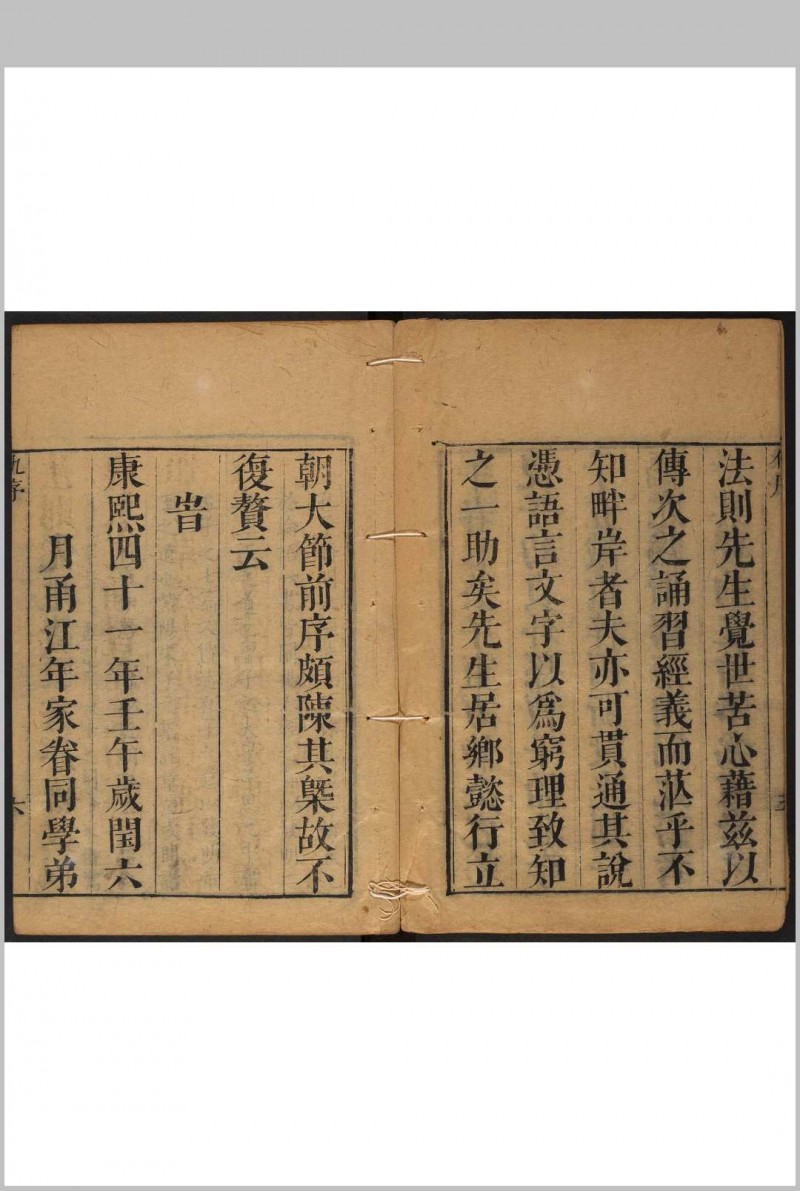 法則先生覺世苦心藉兹以
傳次之誦習經義而茫乎不
知畔岸者夫亦可貫通其說
憑語言文字以爲窮理致知
之一助矣先生居鄉懿行立
五
朝大節前序頗陳其槩故不
復贅云
旹
康熙四十一年壬午歲閏六
月甬江年家眷同學弟
仇序
六